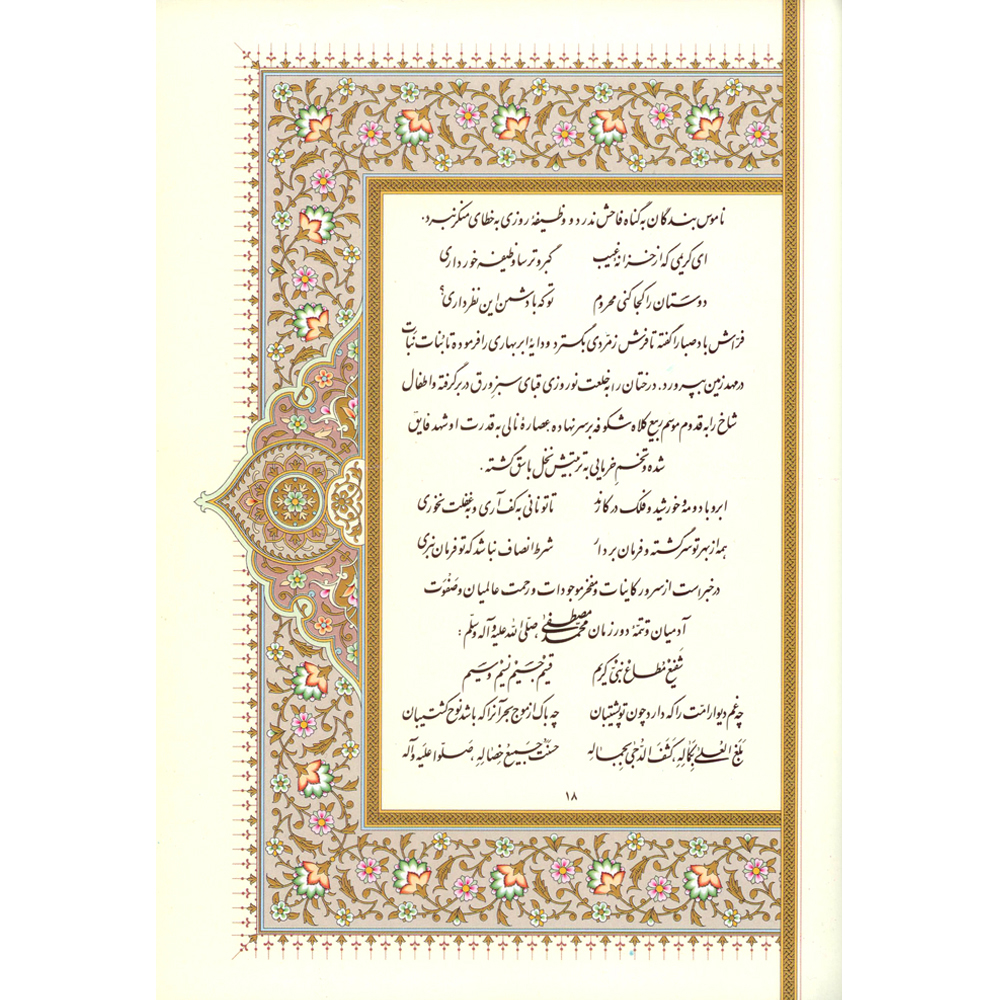 ناموس بندگان به گناه فاحش ندرد و وظیفهٔ روزی به خطای منکر نبرد.
ای کریمی که از خزانهٔ غیب گبر و ترسا وظیفه خور داری
دوستان را کجا کنی محروم تو که با دشمن این نظر داری؟
فرّاش باد صبا را گفته تا فرش زمرّدی بگسترد و دایهٔ ابر بهاری را فرموده تا بنات نبات
در مهد زمین بپرورد. درختان را به خلعت نوروزی قبای سبز ورق در بر گرفته و اطفال
شاخ را به قدوم موسم ربیع کلاه شکوفه بر سر نهاده عصارهٔ نالی به قدرت او شهد فایق
شده و تخم خرمایی به تربیتش نخل باسق گشته.
ابر و باد و مه و خورشید و فلک در کارند تا تو نانی به کف آری و به غفلت نخوری
همه از بهر تو سرگشته و فرمان بردار شرط انصاف نباشد که تو فرمان نبری
در خبر است از سرور کاینات و مفخر موجودات و رحمت عالمیان و صَفْوَت
آدمیان و تتمّهٔ دور زمان محمد مصطفی، صلّی الله علیه و آله و سلّم:
شَفیعٌ مُطاعٌ نَبیٌّ کریم قَسیمٌ جَسیمٌ نَسیمٌ وَسیم
چه غم دیوار امّت را که دارد چون تو پشتیبان چه باک از موج بحر آنرا که باشد نوح کشتیبان
بَلَغَ العُلیٰ بِکَمالِهِ، کَشَفَ الدُّجیٰ بِجَمالِهِ حَسُنَت جَمیعُ خِصالِهِ، صَلُّوا عَلَیهِ و آلِه
۱۸